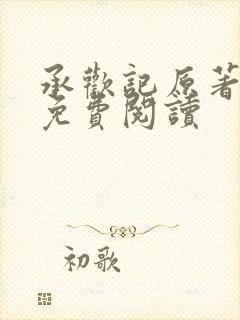 承歡記原著
免費閱讀
初歌